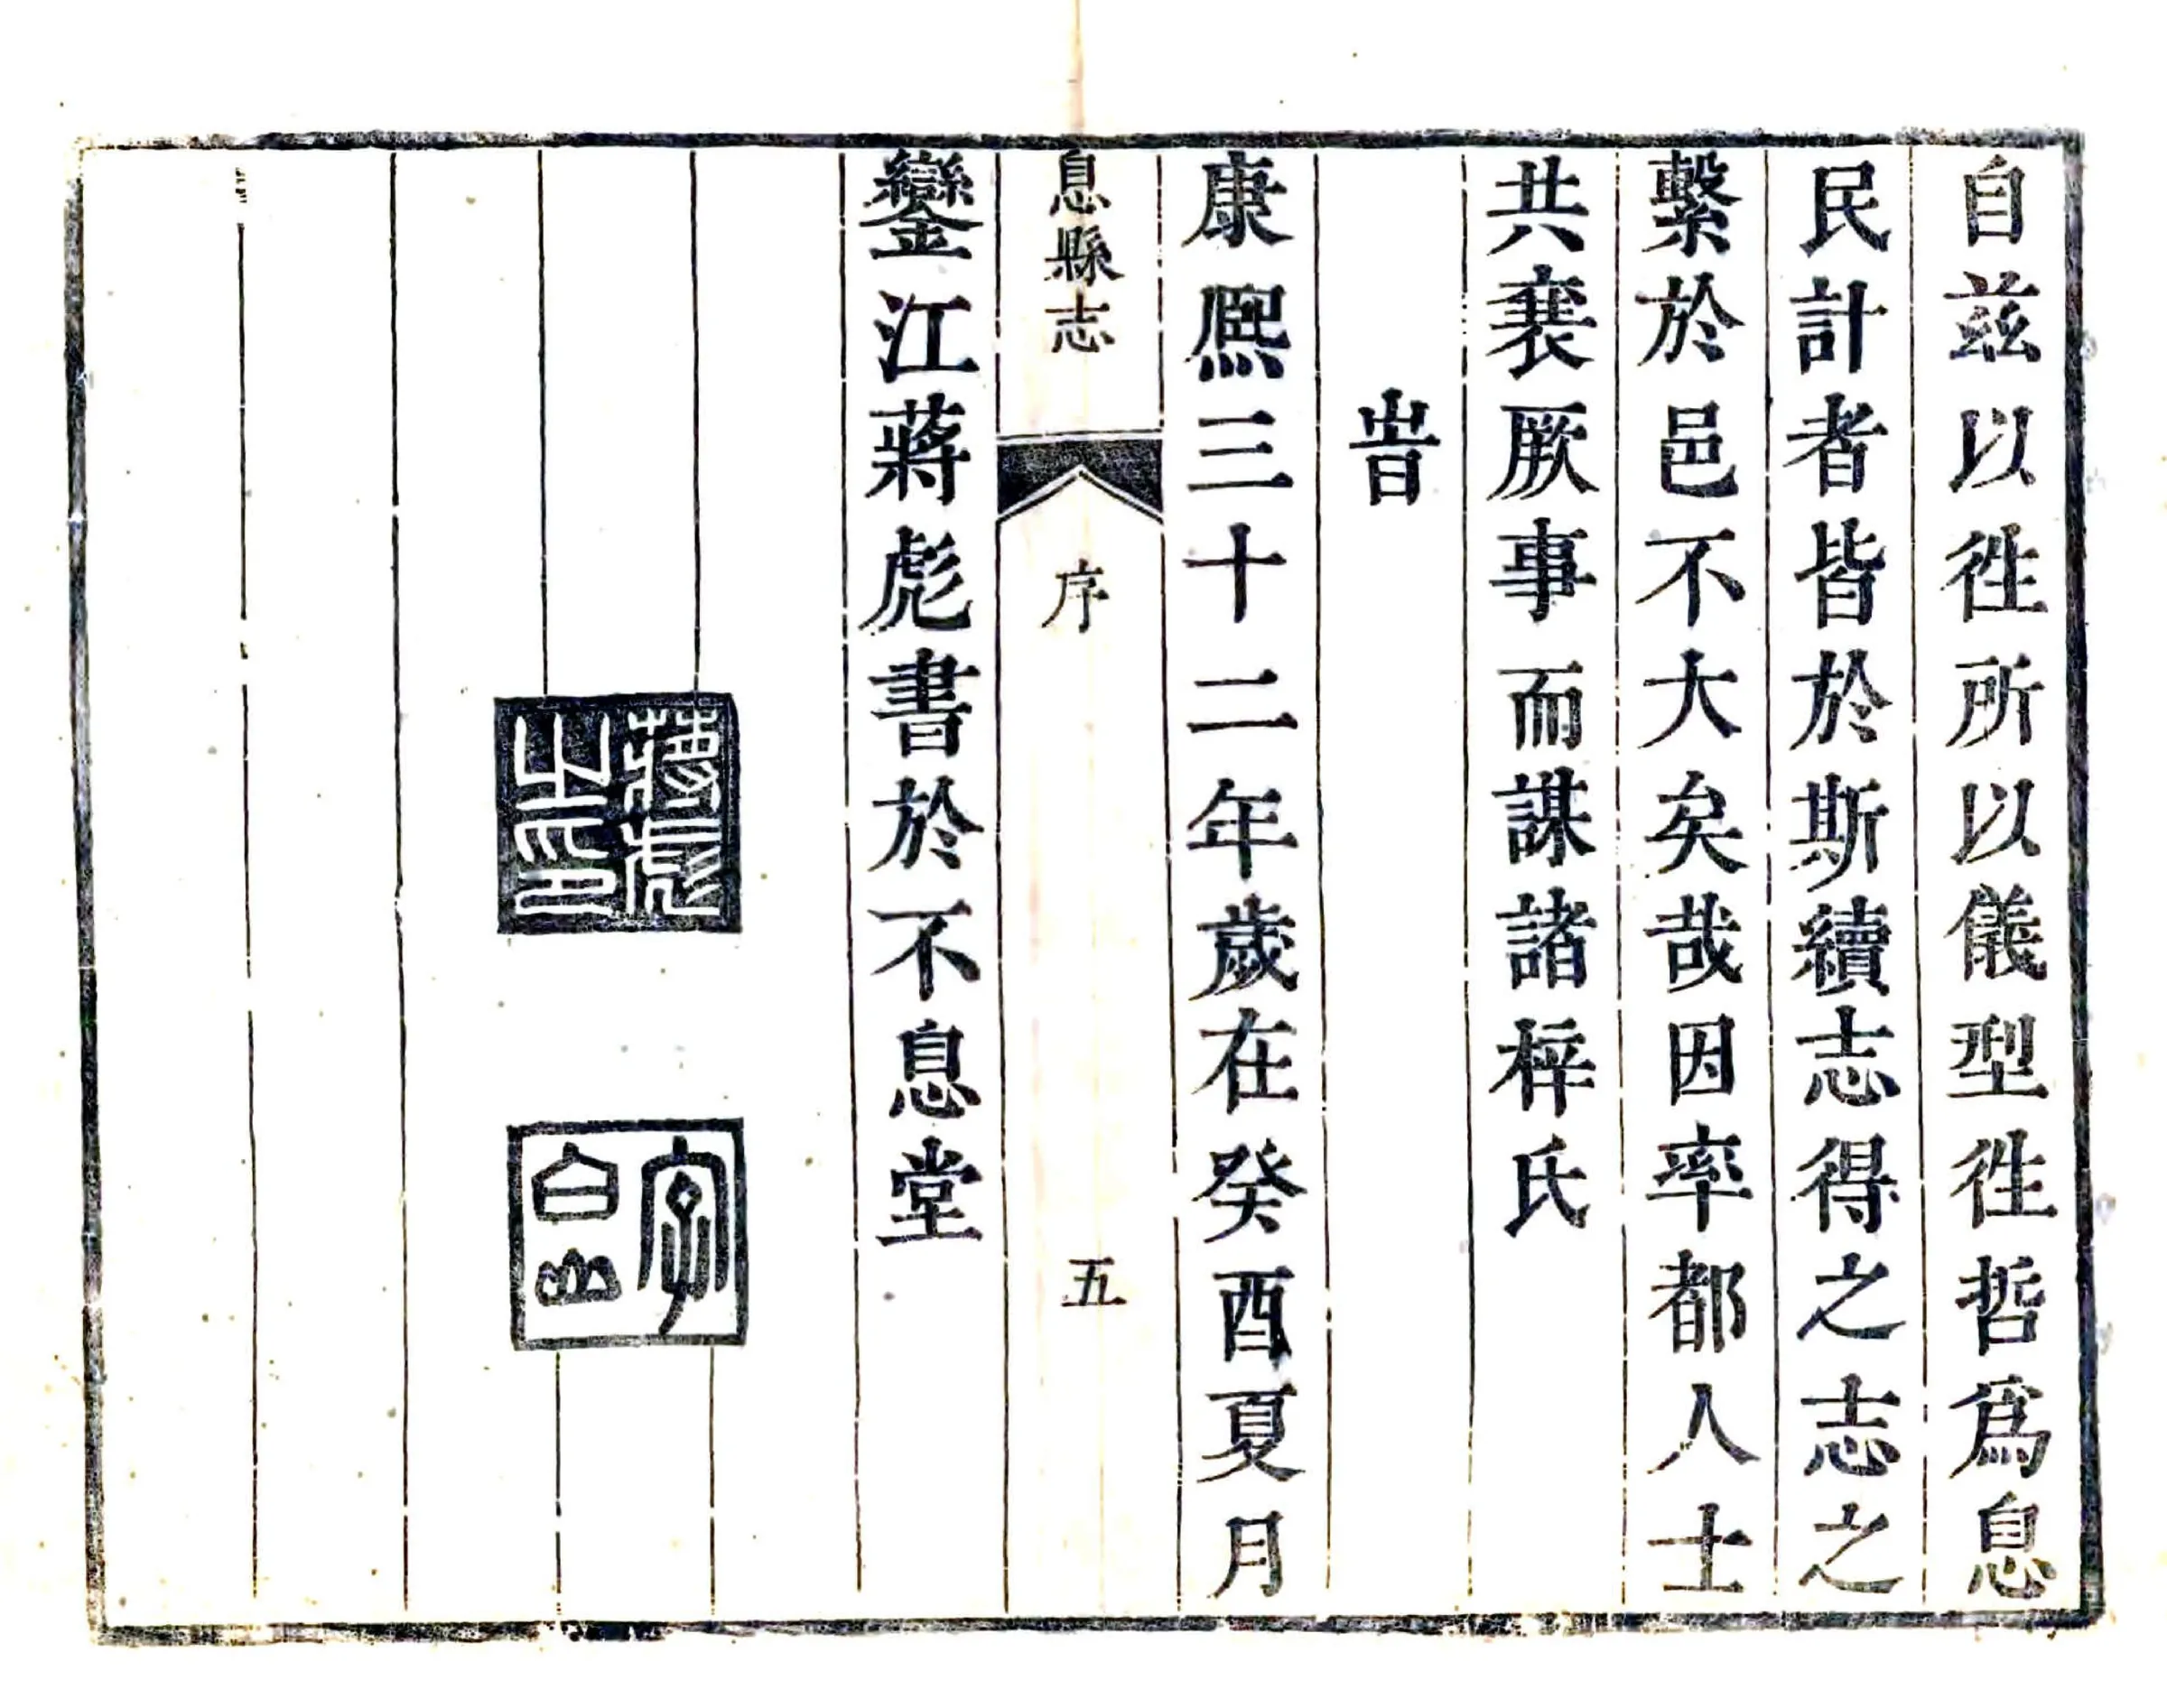 自茲以徃所以儀型徃哲爲息
民計者皆於斯續志得之志之
繫於邑不大矣哉因率都人士
共襄厥事而謀諸梓氏
旹
康熙三十二年歲在癸酉夏月
息縣志
序
五
鑾江蔣彪書於不息堂
蔣彪
之印
字
白山